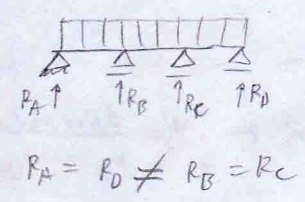 R_A ↑ ↑ R_B ↑ R_C ↑ R_D
R_A = R_D ≠ R_B = R_C